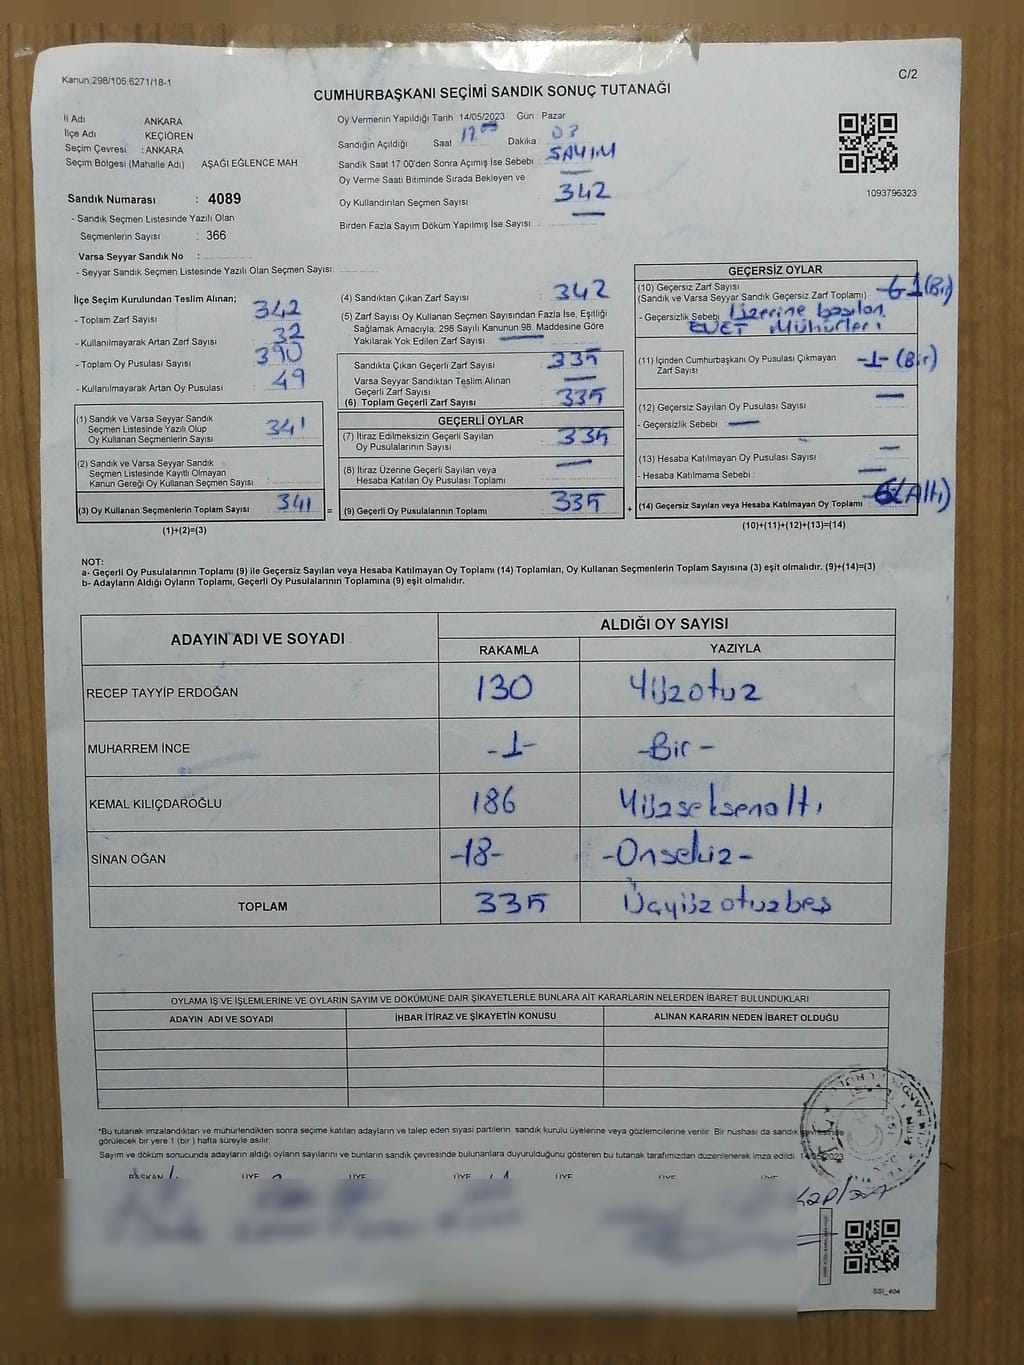 Kanun 298/105 6271/18-1
C/2
CUMHURBAŞKANI SEÇİMİ SANDIK SONUÇ TUTANAĞI
İl Adı ANKARA
İlçe Adı KEÇİÖREN
Seçim Çevresi : ANKARA
Seçim Bölgesi (Mahalle Adı) AŞAĞI EĞLENCE MAH
Sandık Numarası : 4089
- Sandık Seçmen Listesinde Yazılı Olan
Seçmenlerin Sayısı : 366
Varsa Seyyar Sandık No :
- Seyyar Sandık Seçmen Listesinde Yazılı Olan Seçmen Sayısı:
Oy Vermenin Yapıldığı Tarih 14/05/2023 Gün : Pazar
Sandığın Açıldığı Saat Dakika : 03
Sandık Saat 17 00'den Sonra Açımış İse Sebebi : SAYIM
Oy Verme Saati Bitiminde Sırada Bekleyen ve
Oy Kullandırılan Seçmen Sayısı : 342
Birden Fazla Sayım Döküm Yapılmış İse Sayısı :
1093796323
İlçe Seçim Kurulundan Teslim Alınan;
- Toplam Zarf Sayısı : 342
- Kullanılmayarak Artan Zarf Sayısı : 32
- Toplam Oy Pusulası Sayısı : 390
- Kullanılmayarak Artan Oy Pusulası : 49
(1) Sandık ve Varsa Seyyar Sandık
Seçmen Listesinde Yazılı Olup
Oy Kullanan Seçmenlerin Sayısı : 341
(2) Sandık ve Varsa Seyyar Sandık
Seçmen Listesinde Kayıtlı Olmayan
Kanun Gereği Oy Kullanan Seçmen Sayısı :
(3) Oy Kullanan Seçmenlerin Toplam Sayısı : 341 =
(1)+(2)=(3)
(4) Sandıktan Çıkan Zarf Sayısı : 342
(5) Zarf Sayısı Oy Kullanan Seçmen Sayısından Fazla İse, Eşitliği
Sağlamak Amacıyla; 298 Sayılı Kanunun 98. Maddesine Göre
Yakılarak Yok Edilen Zarf Sayısı :
Sandıkta Çıkan Geçerli Zarf Sayısı : 335
Varsa Seyyar Sandıktan Teslim Alınan
Geçerli Zarf Sayısı :
(6) Toplam Geçerli Zarf Sayısı : 335
GEÇERLİ OYLAR
(7) İtiraz Edilmeksizin Geçerli Sayılan
Oy Pusulalarının Sayısı : 335
(8) İtiraz Üzerine Geçerli Sayılan veya
Hesaba Katılan Oy Pusulası Toplamı :
(9) Geçerli Oy Pusulalarının Toplamı : 335 +
GEÇERSİZ OYLAR
(10) Geçersiz Zarf Sayısı
(Sandık ve Varsa Seyyar Sandık Geçersiz Zarf Toplamı) :
- Geçersizlik Sebebi : Üzerine basılan
EVET Mühürleri
(11) İçinden Cumhurbaşkanı Oy Pusulası Çıkmayan
Zarf Sayısı : -1- (Bir)
(12) Geçersiz Sayılan Oy Pusulası Sayısı :
- Geçersizlik Sebebi :
(13) Hesaba Katılmayan Oy Pusulası Sayısı :
- Hesaba Katılmama Sebebi :
(14) Geçersiz Sayılan veya Hesaba Katılmayan Oy Toplamı : 6 (Altı)
(10)+(11)+(12)+(13)=(14)
NOT:
a- Geçerli Oy Pusulalarının Toplamı (9) ile Geçersiz Sayılan veya Hesaba Katılmayan Oy Toplamı (14) Toplamları, Oy Kullanan Seçmenlerin Toplam Sayısına (3) eşit olmalıdır. (9)+(14)=(3)
b- Adayların Aldığı Oyların Toplamı, Geçerli Oy Pusulalarının Toplamına (9) eşit olmalıdır.
ADAYIN ADI VE SOYADI
ALDIĞI OY SAYISI
RAKAMLA YAZIYLA
RECEP TAYYİP ERDOĞAN 130 Yüzotuz
MUHARREM İNCE -1- -Bir-
KEMAL KILIÇDAROĞLU 186 Yüzseksenaltı
SİNAN OĞAN -18- -Onsekiz-
TOPLAM 335 Üçyüzotuzbeş
OYLAMA İŞ VE İŞLEMLERİNE VE OYLARIN SAYIM VE DÖKÜMÜNE DAİR ŞİKAYETLERLE BUNLARA AİT KARARLARIN NELERDEN İBARET BULUNDUKLARI
ADAYIN ADI VE SOYADI İHBAR İTİRAZ VE ŞİKAYETİN KONUSU ALINAN KARARIN NEDEN İBARET OLDUĞU
*Bu tutanak imzalandıktan ve mühürlendikten sonra seçime katılan adayların ve talep eden siyasi partilerin sandık kurulu üyelerine veya gözlemcilerine verilir Bir nüshası da sandık
görülecek bir yere 1 (bir) hafta süreyle asılır.
Sayım ve döküm sonucunda adayların aldığı oyların sayılarını ve bunların sandık çevresinde bulunanlara duyurulduğunu gösteren bu tutanak tarafımızdan düzenlenerek imza edildi. 14/05/2023
BAŞKAN ÜYE ÜYE ÜYE ÜYE ÜYE ÜYE
SSI_404